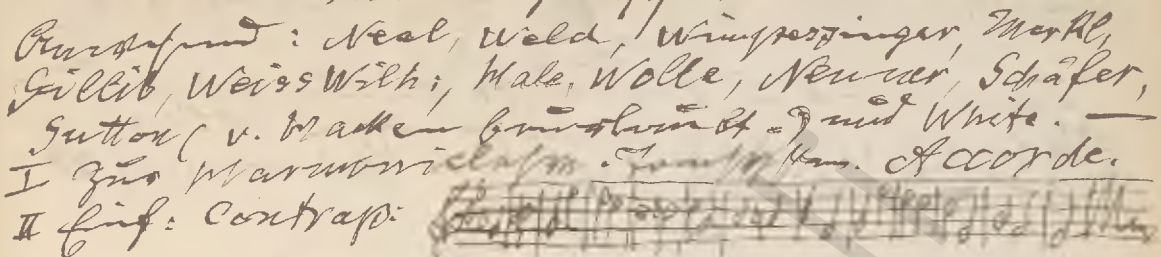 Anwesend: Neal, Weld, Wimpessinger, Merkl,
Gillib, Weiss Wilh:, Hale, Wolle, Neuner, Schäfer,
Sutton (v. Macken beurlaubt.) und White. —
I Zur Harmonielehre. Accorde.
II Einf: Contrap: